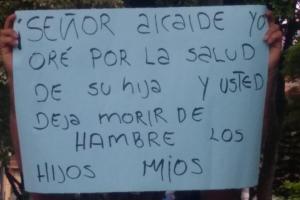 ¡SEÑOR alcaIDE yo
ORÉ POR LA SALUD
DE SU hIJA Y USTED
DEJA MORIR DE
HAMBRE LOS
HIJOS MIOS